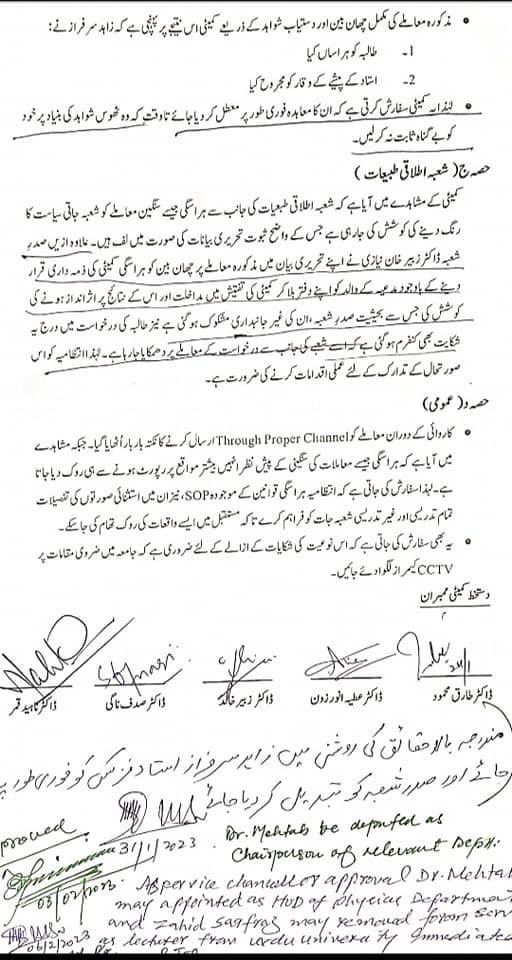 • مذکورہ معاملے کی مکمل چھان بین اور دستیاب شواہد کے ذریعے کمیٹی اس نتیجے پر پہنچی ہے کہ زاہد سرفراز نے:
1- طالبہ کو ہراساں کیا
2- استاد کے پیشے کے وقار کو مجروح کیا
• لہٰذا یہ کمیٹی سفارش کرتی ہے کہ ان کا معاہدہ فوری طور پر معطل کر دیا جائے تاوقت کہ وہ ٹھوس شواہد کی بنیاد پر خود
کو بے گناہ ثابت نہ کر لیں۔
حصہ ج (شعبہ اطلاقی طبیعات)
کمیٹی کے مشاہدے میں آیا ہے کہ شعبہ اطلاقی طبعیات کی جانب سے ہراسگی جیسے سنگین معاملے کو شعبہ جاتی سیاست کا
رنگ دینے کی کوشش کی جا رہی ہے جس کے واضح ثبوت تحریری بیانات کی صورت میں لف ہیں۔ علاوہ ازیں صدر
شعبہ ڈاکٹر زبیر خان نیازی نے اپنے تحریری بیان میں مذکورہ معاملے پر چھان بین کو ہراسگی کمیٹی کی ذمہ داری قرار
دینے کے باوجود مدعیہ کے والد کو اپنے دفتر بلا کر کمیٹی کی تفتیش میں مداخلت اور اس کے نتائج پر اثر انداز ہونے کی
کوشش کی جس سے بحیثیت صدر شعبہ، ان کی غیر جانبداری مشکوک ہو گئی ہے نیز طالبہ کی درخواست میں درج یہ
شکایت بھی کنفرم ہو گئی ہے کہ اسے شعبے کی جانب سے درخواست کے معاملے پر دھمکایا جا رہا ہے۔ لہذا انتظامیہ کو اس
صورتحال کے تدارک کے لئے عملی اقدامات کرنے کی ضرورت ہے۔
حصہ د (عمومی)
• کاروائی کے دوران معاملے کو Through Proper Channel ارسال کرنے کا نکتہ بار بار اُٹھایا گیا۔ جبکہ مشاہدے
میں آیا ہے کہ ہراسگی جیسے معاملات کی سنگینی کے پیش نظر انہیں بیشتر مواقع پر رپورٹ ہونے سے ہی روک دیا جاتا
ہے۔ لہذا سفارش کی جاتی ہے کہ انتظامیہ ہراسگی قوانین کے موجودہ SOP، نیز ان میں استثنائی صورتوں کی تفصیلات
تمام تدریسی اور غیر تدریسی شعبہ جات کو فراہم کرے تاکہ مستقبل میں ایسے واقعات کی روک تھام کی جا سکے۔
• یہ بھی سفارش کی جاتی ہے کہ اس نوعیت کی شکایات کے ازالے کے لئے ضروری ہے کہ جامعہ میں ضروی مقامات پر
CCTV کیمراز لگوا دئے جائیں۔
دستخط کمیٹی ممبران
24/1
ڈاکٹر طارق محمود ڈاکٹر عطیہ انور زون ڈاکٹر زبیر خالد ڈاکٹر صدف ناگی ڈاکٹر ناہید قمر
مندرجہ بالا حقائق کی روشنی میں زاہد سرفراز استاد فزکس کو فوری طور پر
جائے اور صدر شعبہ کو تبدیل کر دیا جائے
31/1/2023
Dr. Mehtab be deputed as
Chairperson of relevant Deptt:
03/02/2023
As per vice chancellor approval Dr. Mehtab
may appointed as HoD of Physics Department
and Zahid Sarfraz may removed form Serv
06/2/2023 as lecturer from urdu university immediatel